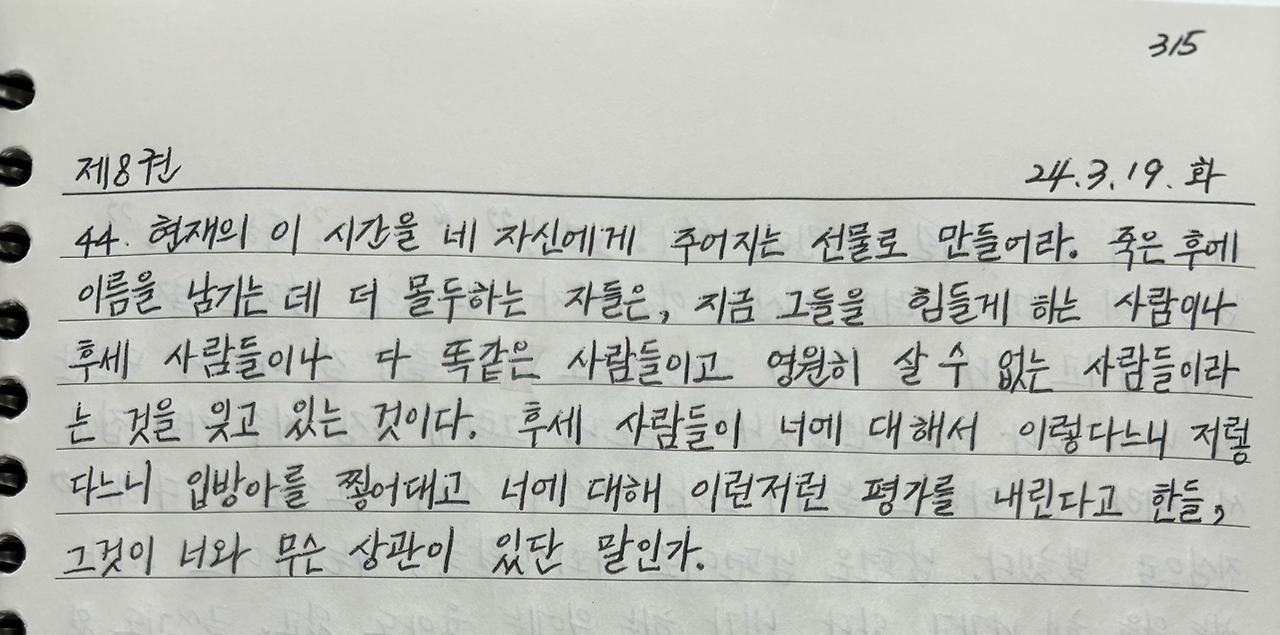 315
제8권 24.3.19. 화
44. 현재의 이 시간을 네 자신에게 주어지는 선물로 만들어라. 죽은 후에
이름을 남기는 데 더 몰두하는 자들은, 지금 그들을 힘들게 하는 사람이나
후세 사람들이나 다 똑같은 사람들이고 영원히 살 수 없는 사람들이라
는 것을 잊고 있는 것이다. 후세 사람들이 너에 대해서 이렇다느니 저렇
다느니 입방아를 찧어대고 너에 대해 이런저런 평가를 내린다고 한들,
그것이 너와 무슨 상관이 있단 말인가.